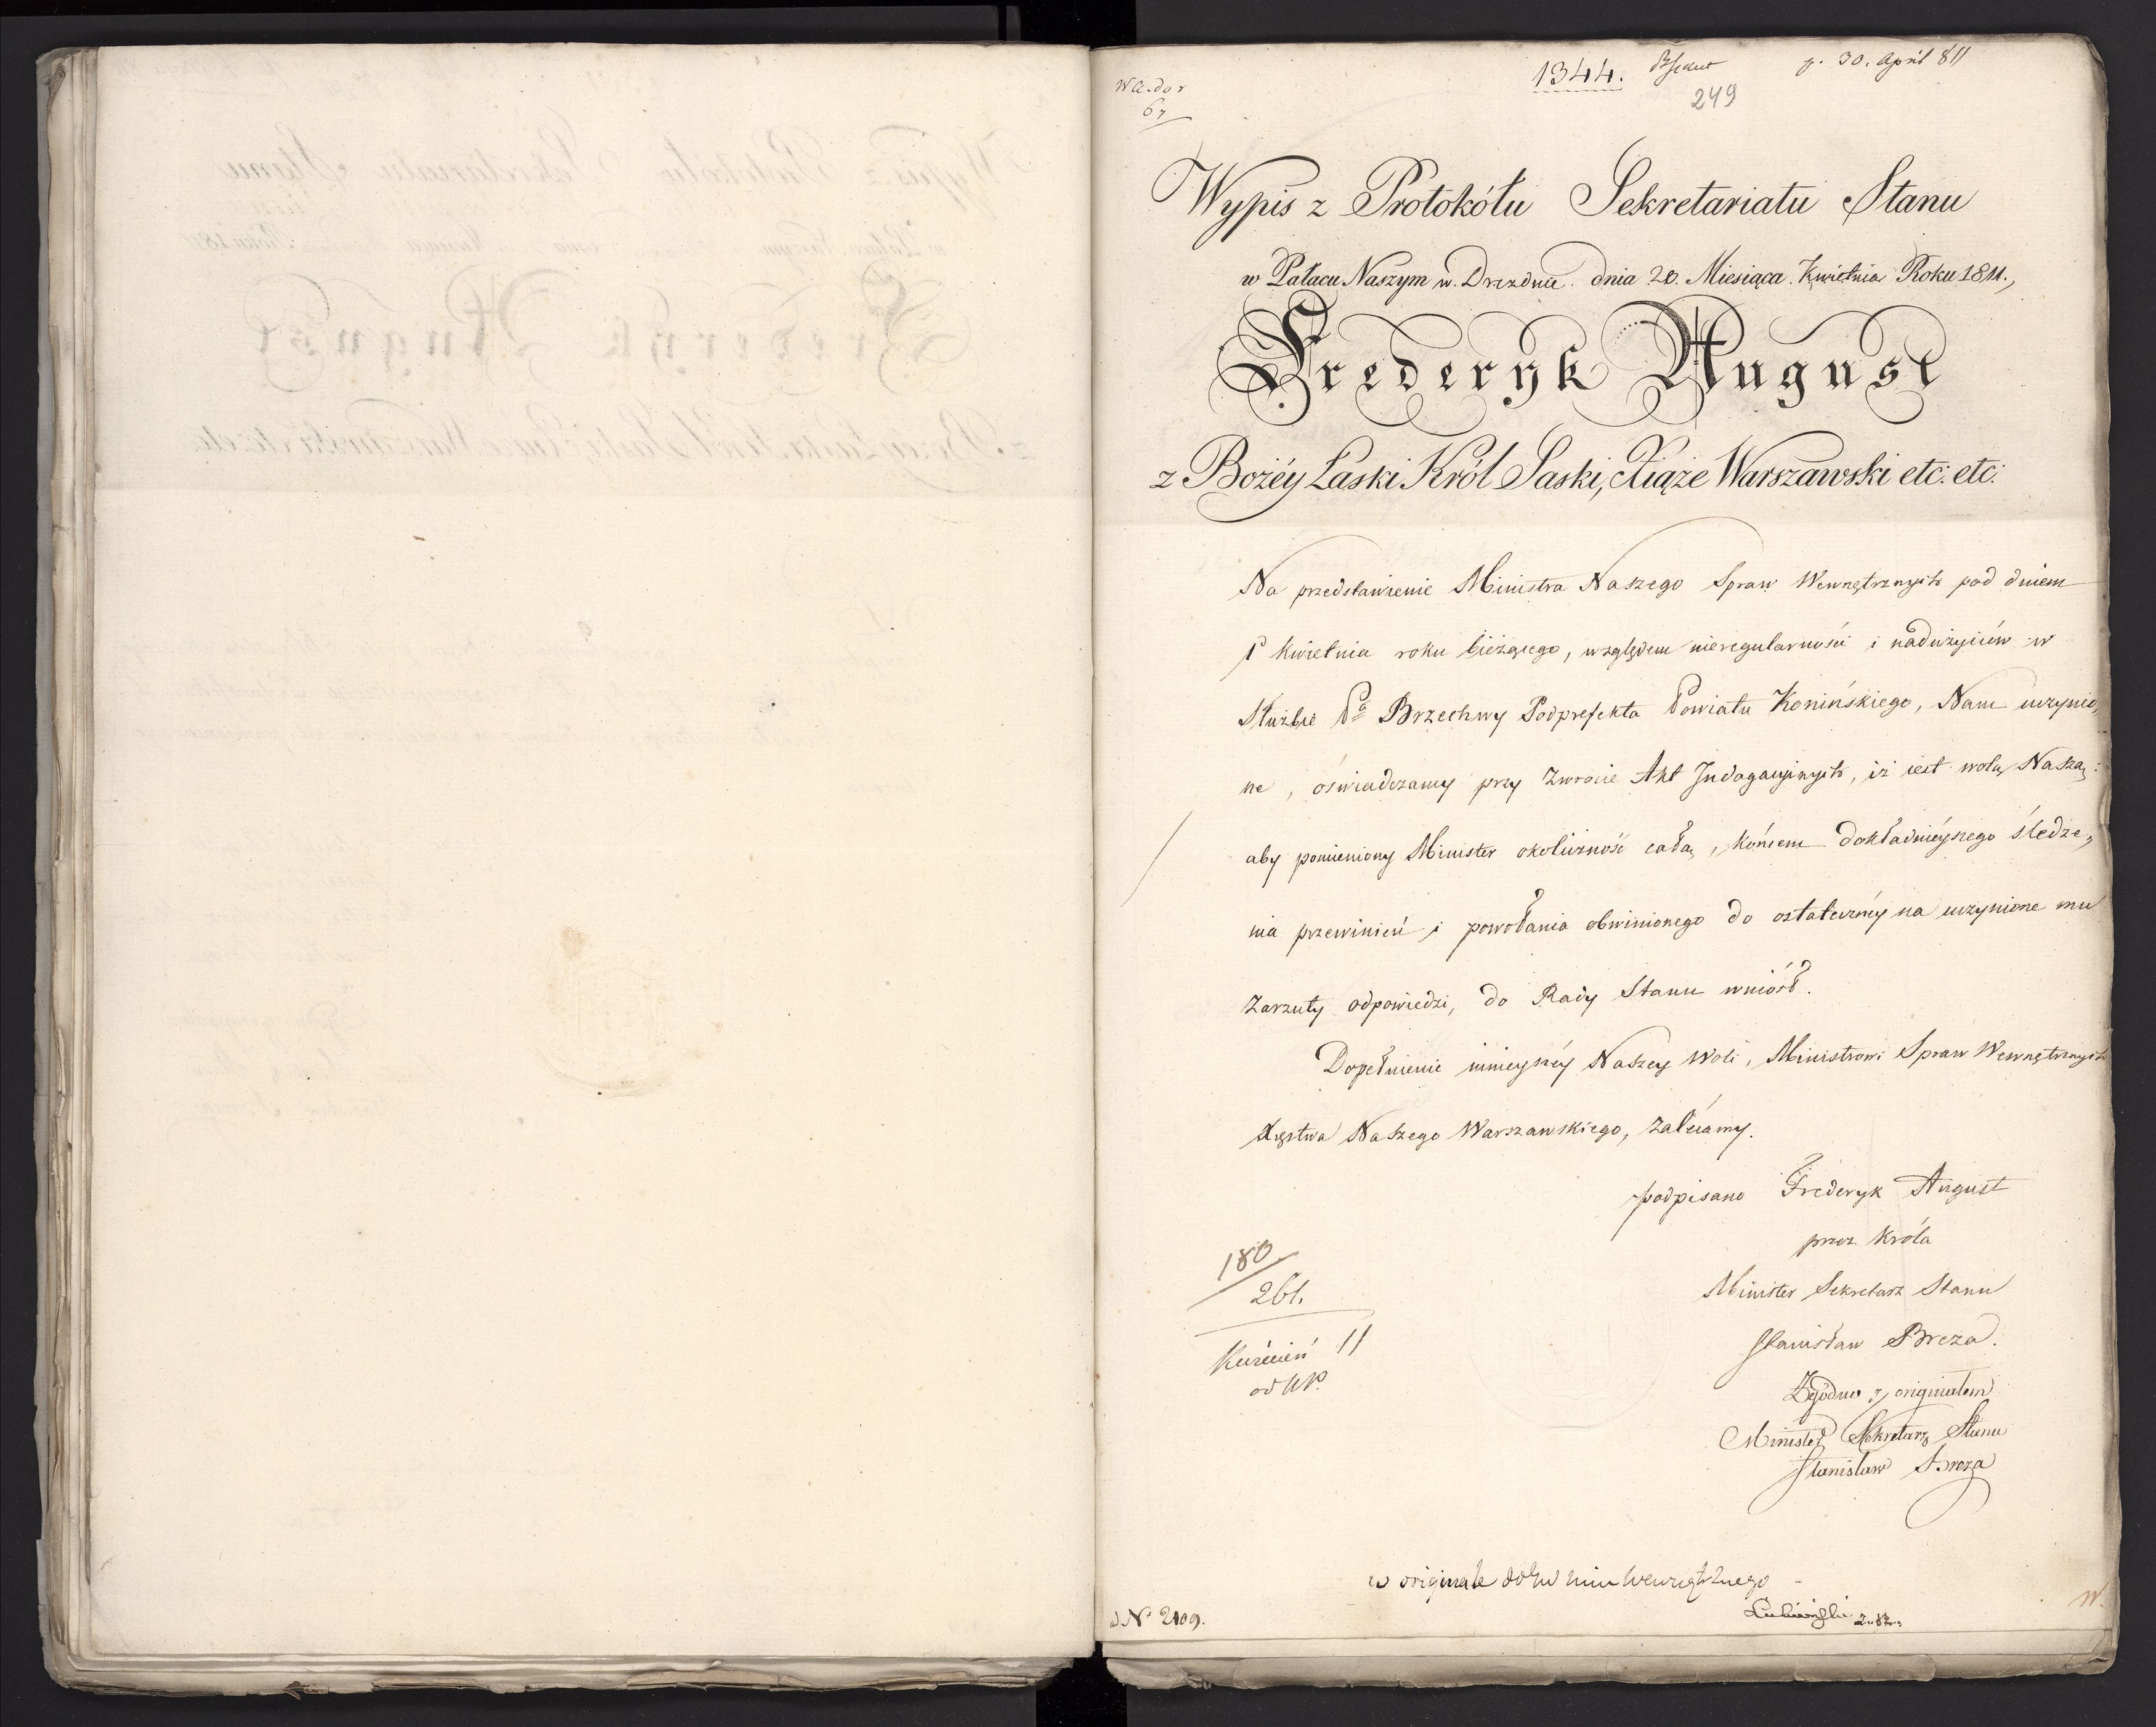 1344. p. 30. April 811
249
67
Wypis z Protokółu Sekretariatu Stanu
w Pałacu Naszym w Dreźnie dnia 20. Miesiąca Kwietnia Roku 1811.,
Frederyk August
z Bożéy Łaski Król Saski, Xiąże Warszawski etc: etc:
Na przedstawienie Ministra Naszego Spraw Wewnętrznych pod dniem
1 Kwietnia roku bieżącego, względem nieregularności i nadużyciów w
Służbie Pa Brzechwy Podprefekta Powiatu Konińskiego, Nam uczynio,
ne, oświadczamy przy zwrocie Akt Indagacyinych, iż iest wolą Naszą:
aby pomieniony Minister okoliczność całą, końcem dokładnieyszego śledze,
nia przewinień i powołania obwinionego do ostateczney na uczynione mu
zarzuty odpowiedzi, do Rady Stanu wniósł.
Dopełnienie ninieyszéy Naszey Woli, Ministrowi Spraw Wewnętrznych
Xięstwa Naszego Warszawskiego, zalecamy.
podpisano Frederyk August
przez Króla
Minister Sekretarz Stanu
Stanisław Breza.
Zgodno z originałem
Minister Sekretarz Stanu
Stanisław Breza
180
261.
Kwiecień 11
w originale
Wewnętrznego
Nº 2109.